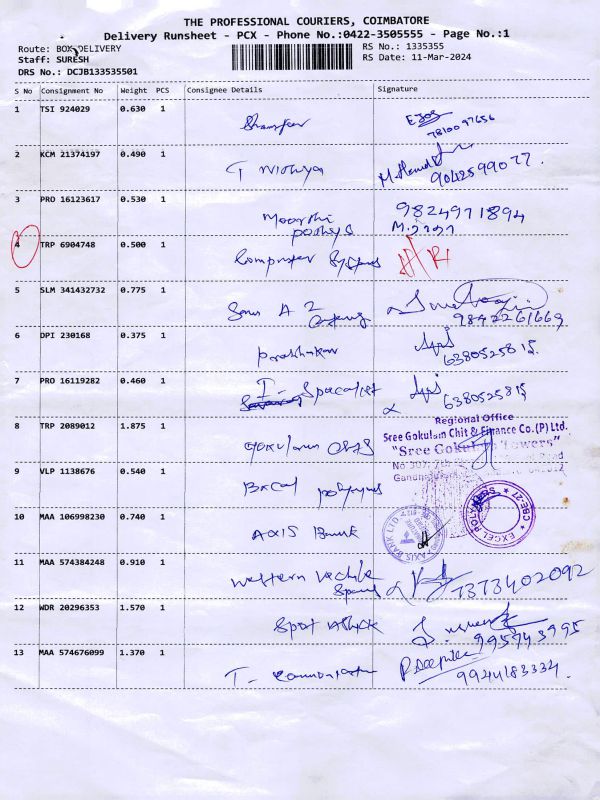 THE PROFESSIONAL COURIERS, COIMBATORE
Delivery Runsheet - PCX - Phone No.:0422-3505555 - Page No.:1
Route: BOX DELIVERY
RS No.: 1335355
Staff: SURESH
RS Date: 11-Mar-2024
DRS No.: DCJB133535501
S No Consignment No Weight PCS Consignee Details Signature
1 TSI 924029 0.630 1
7810097656
2 KCM 21374197 0.490 1 T Nithya
9042599077.
3 PRO 16123617 0.530 1 Moorthi
9824971894
4 TRP 6904748 0.500 1 Computer Systems
5 SLM 341432732 0.775 1
9842261669
6 DPI 230168 0.375 1 Prabhakar
6380525815.
7 PRO 16119282 0.460 1 I - Spacalist
6380525815
8 TRP 2089012 1.875 1 Gokulam
Regional Office
Sree Gokulam Chit & Finance Co.(P) Ltd.
"Sree Gokulam Towers"
9 VLP 1138676 0.540 1 Excel polymers
EXCEL POLYMERS ★ CBE-27 ★
10 MAA 106998230 0.740 1 AXIS Bank
AXIS BANK LTD
11 MAA 574384248 0.910 1 Western Vechile
7373402092
12 WDR 20296353 1.570 1 Spot
995743995
13 MAA 574676099 1.370 1 T-
P. Deepika
9944183334.